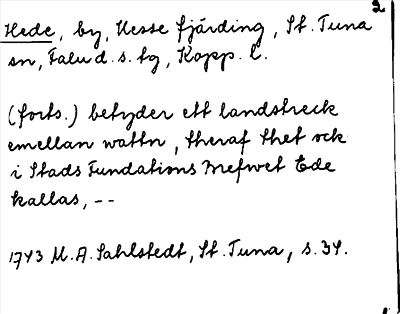 2
Hede, by, Hesse fjärding, St. Tuna
sn, Falu d. s. tg, Kopp. l.
(forts.) betyder ett landstreck
emellan wattn, theraf thet ock
i Stads Fundations Brefwet Ede
kallas, --
1743 M. A. Sahlstedt, St. Tuna, s. 34.